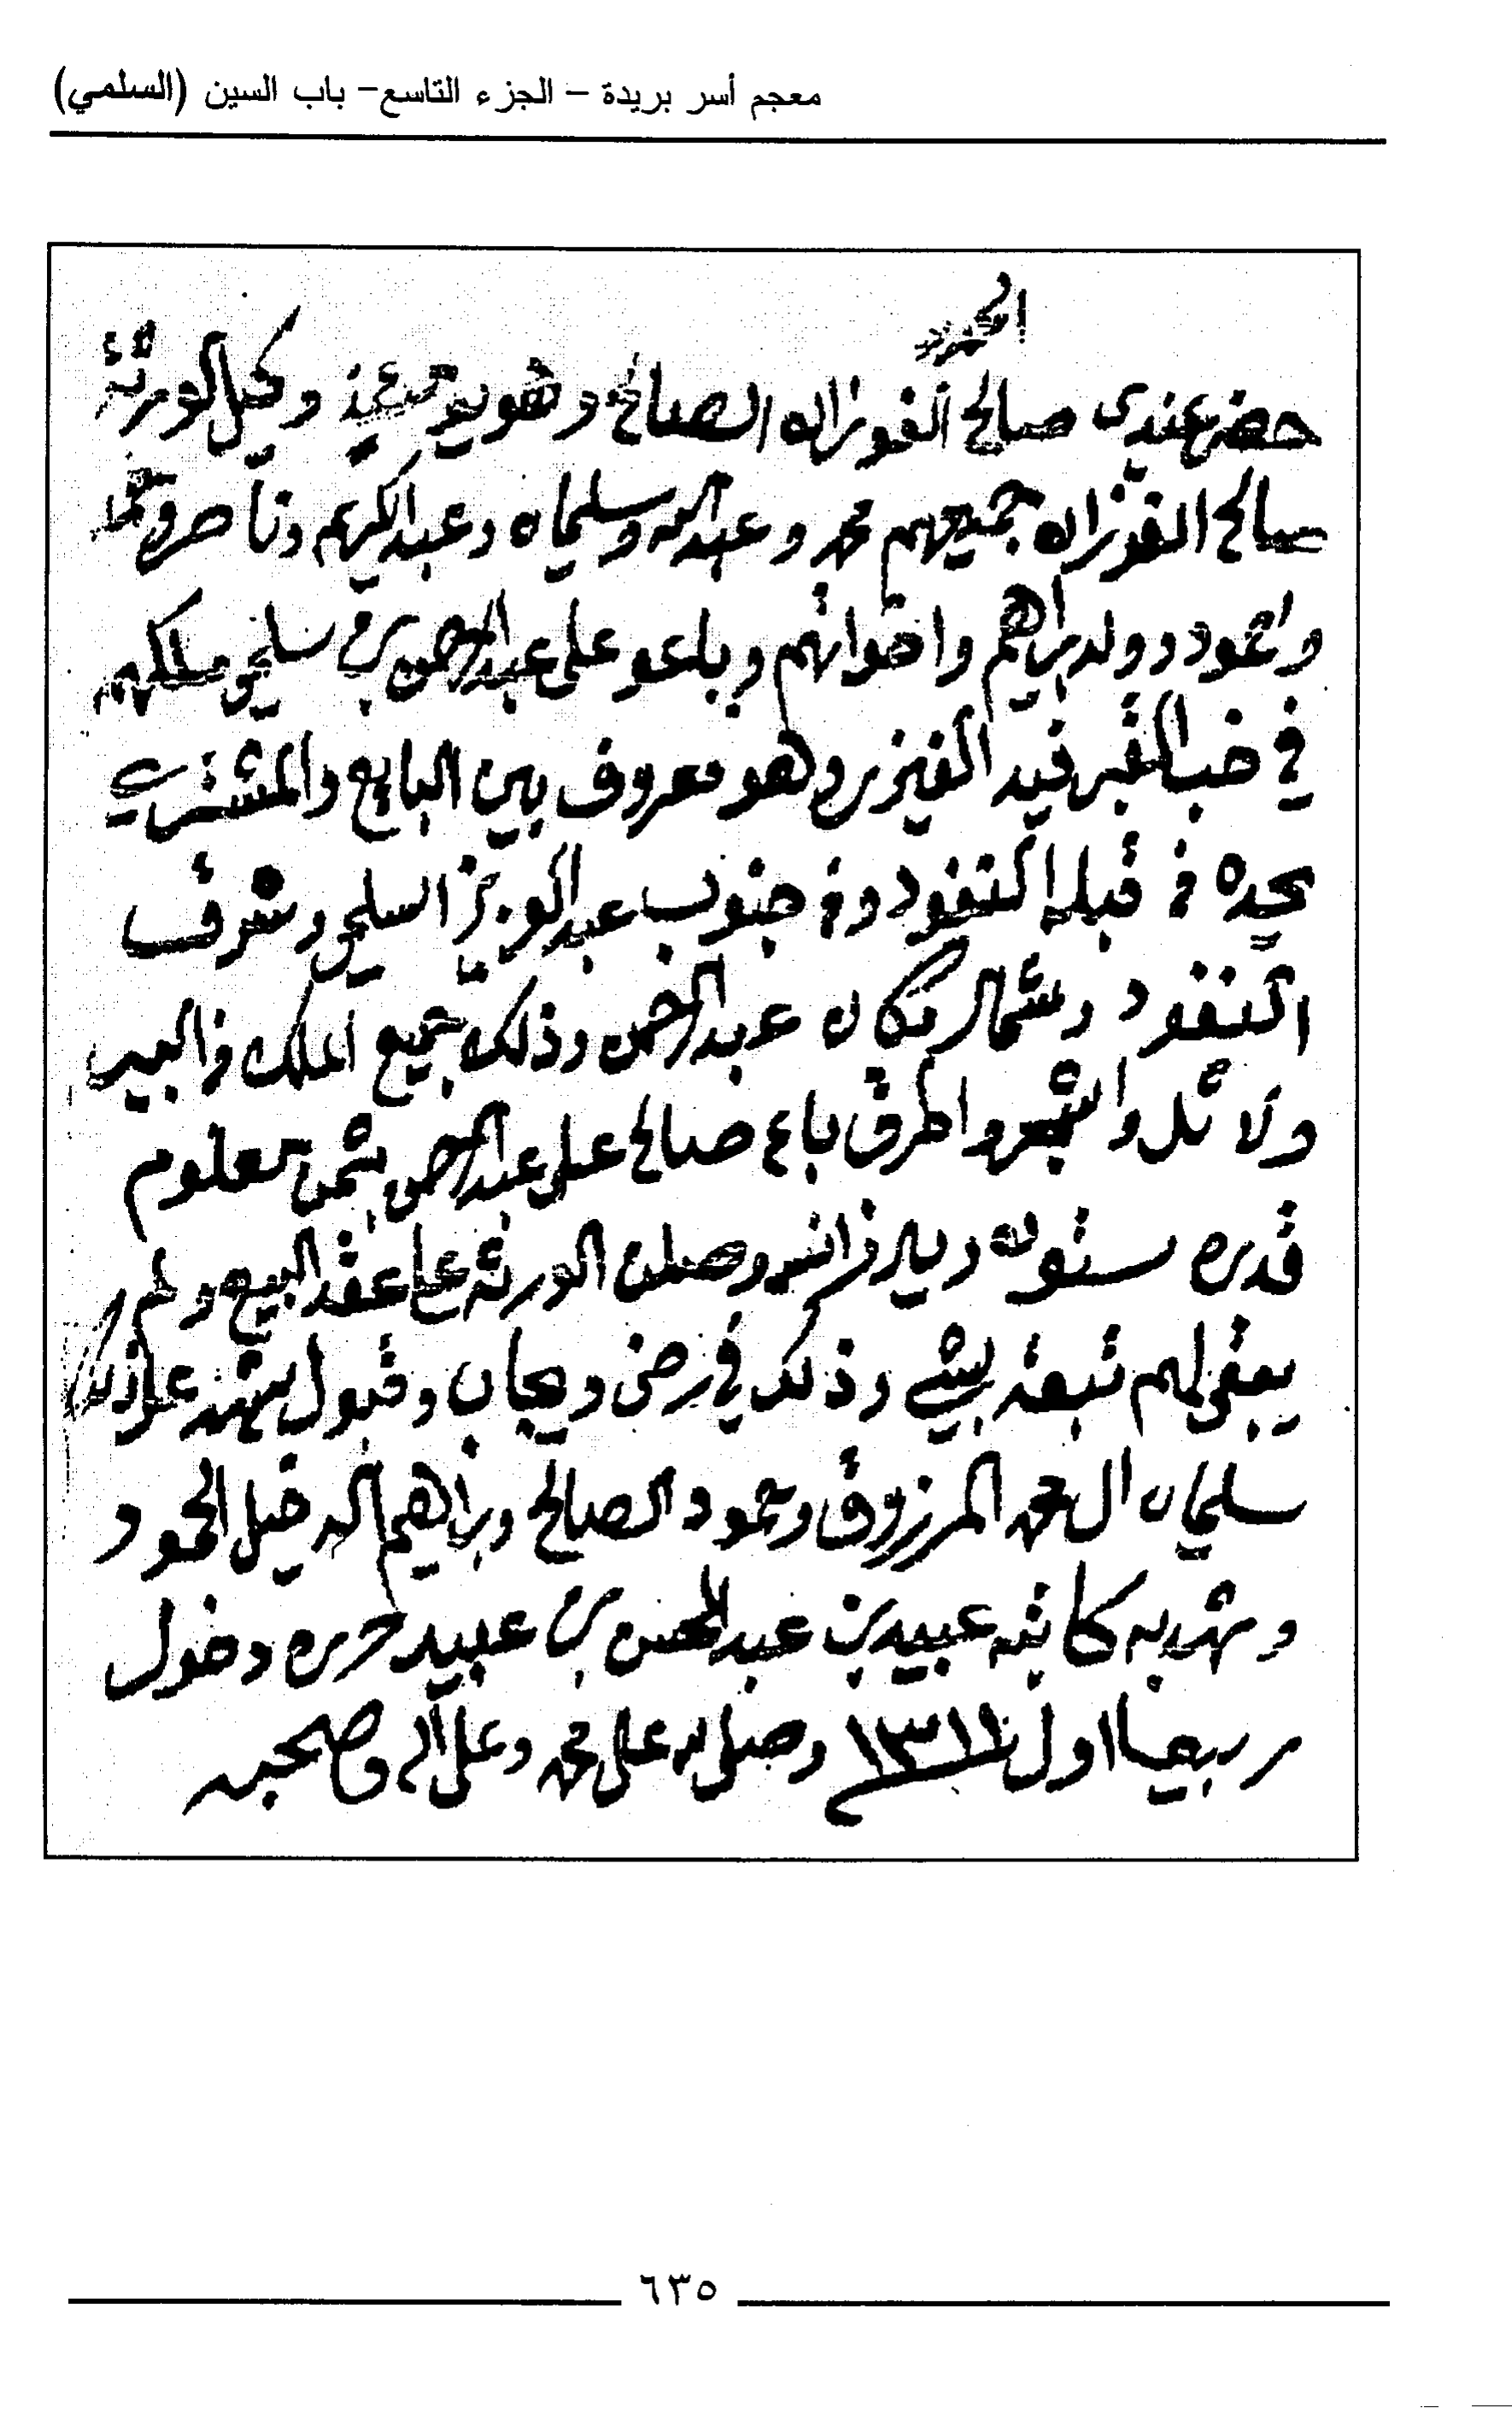 معجم أسر بريدة – الجزء التاسع– باب السين (السلمي)
الحمد لله
حضر عندي صالح الفوزان الصالح وهو يومئذ وكيل لورثة
صالح الفوزان جميعهم محمد وعبدالله وسليمان وعبدالكريم وناصر
وحمود وولد ابراهيم واخواتهم وباعو على عبدالرحمن بن سليمي ملكهم
في خب القبر فيد الفيز وهو معروف بين البايع والمشتري
يحده من قبله النفود ومن جنوب عبدالعزيز السليمي وشرق
النفود وشمال مكان عبدالرحمن وذلك جميع الملك من البير
ولاثل والشجر والطرق باع صالح على عبدالرحمن بثمن معلوم
قدره ستون ريال فرانسه وصلن الورثة على عقد البيع ولم
يبقى لهم تبعة بشي وذلك في رضى ويجاب وقبول شهد على ذلك
سليمان ال محمد المرزوق وحمود الصالح وبراهيم الدخيل الحمود
وشهد به كاتبه عبيد بن عبدالمحسن بن عبيد حرره دخول
ربيع اول ١٣١١ وصلى الله على محمد وعلى اله وصحبه
٦٣٥